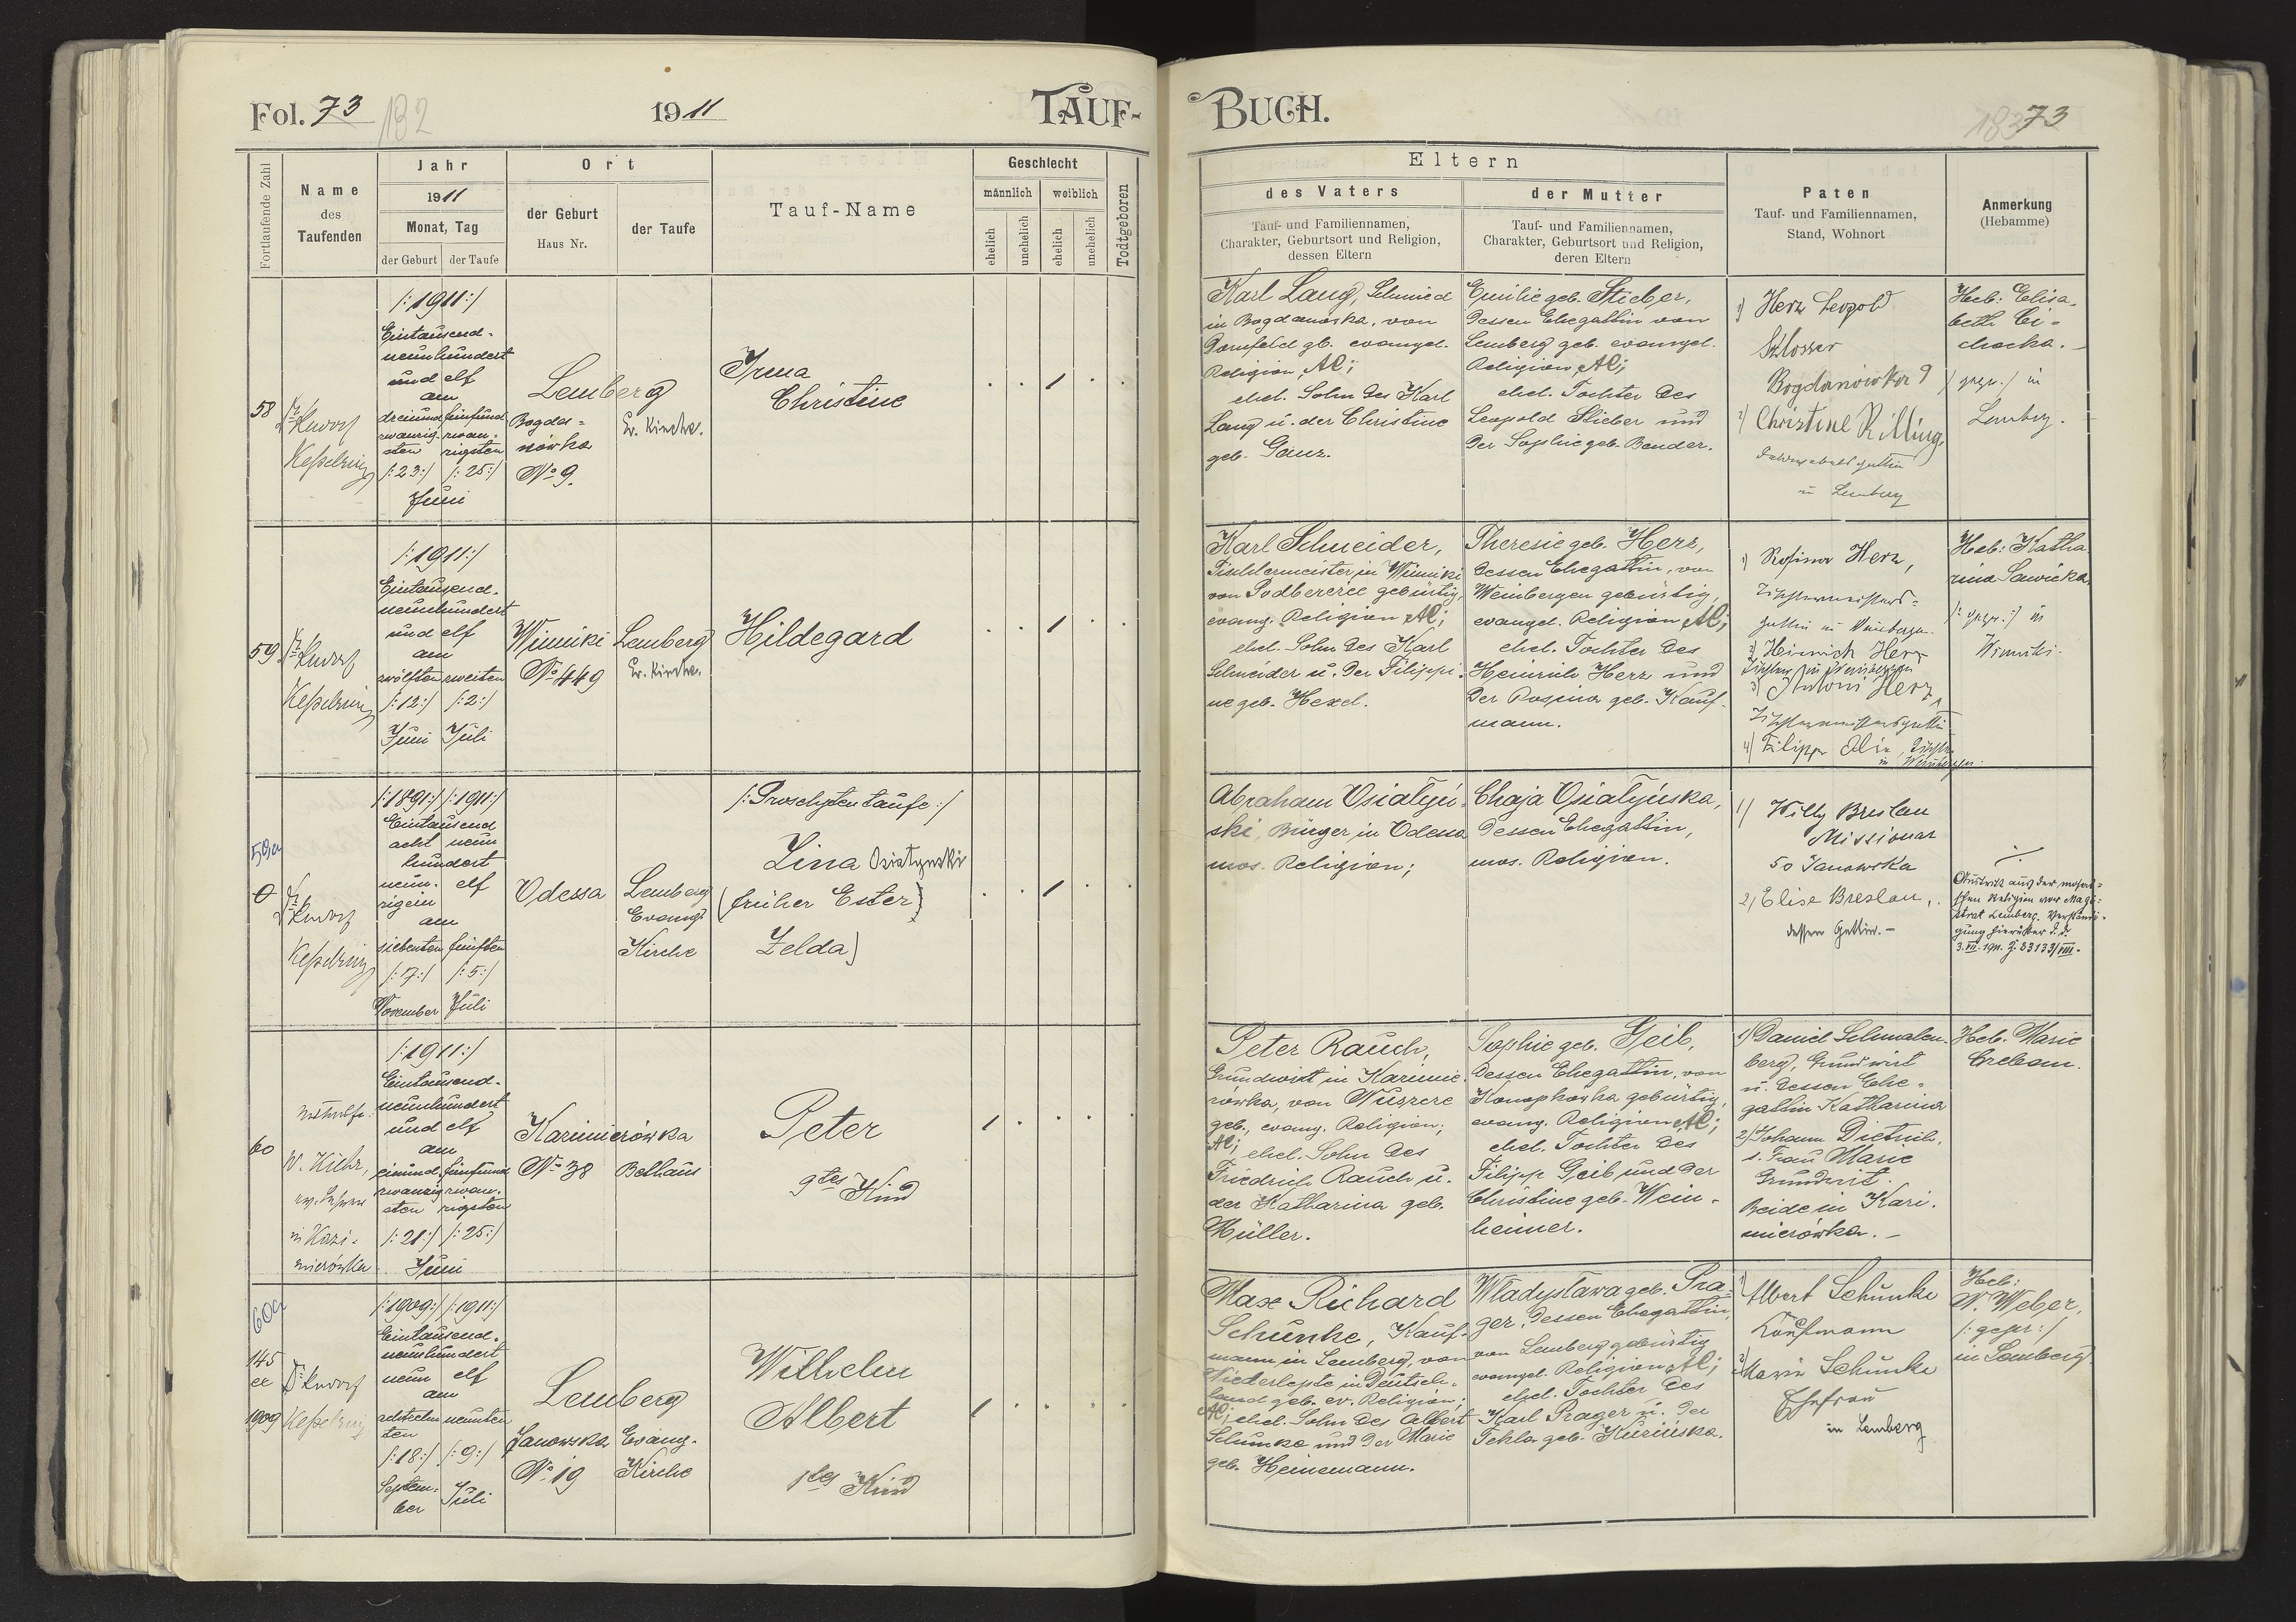 Fol. 73 182
1911
TAUF-
Fortlaufende Zahl
Name
des
Taufenden
Jahr
1911
Monat, Tag
der Geburt
der Taufe
Ort
der Geburt
Haus Nr.
der Taufe
Tauf-Name
Geschlecht
männlich
weiblich
ehelich
unehelich
ehelich
unehelich
Todtgeboren
58
Keßelring
/:1911:/
Eintausend-
neunhundert
und elf
am
dreiund- fünfund
zwanzig- zwan-
sten zigsten
/:23:/ /:25:/
Juni
Lemberg
Bogda-
nówka
No 9.
Ev. Kirche.
Irma
Christine
59
Keßelring
/:1911:/
Eintausend-
neunhundert
und elf
am
zwölften zweiten
/:12:/ /:2:/
Juni Juli
Winniki
No 449
Lemberg
Ev. Kirche.
Hildegard
59a
0
Keßelring
/:1891:/ /:1911:/
Eintausend
acht neun
hundert
neun- elf
zigein
am
siebenten fünften
/:7:/ /:5:/
November Juli
Odessa
Lemberg
Evang.
Kirche
/:Proselytentaufe:/
Zina Osiatynski
(früher Ester
Zelda)
60
in Kazi-
mierówka
/:1911:/
Eintausend-
neunhundert
und elf
am
einund- fünfund
zwanzig zwan-
sten zigsten
/:21:/ /:25:/
Juni
Kazimierówka
No 38 Bethaus
Peter
9tes Kind
60a
145
ex
1909
Keßelring
/:1909:/ /:1911:/
Eintausend-
neunhundert
neun elf
am
achtzehn neunten
ten
/:18:/ /:9:/
Septem- Juli
ber
Lemberg
Janowska Evang.
No 19 Kirche
Wilhelm
Albert
1tes Kind
BUCH.
183 73
Eltern
des Vaters
Tauf- und Familiennamen,
Charakter, Geburtsort und Religion,
dessen Eltern
der Mutter
Tauf- und Familiennamen,
Charakter, Geburtsort und Religion,
deren Eltern
Paten
Tauf- und Familiennamen,
Stand, Wohnort
Anmerkung
(Hebamme)
Karl Lang, Schmied
in Bogdanówka, von
Dornfeld gb. evangel.
Religion, AC;
ehel. Sohn des Karl
Lang u. der Christine
geb. Ganz.
Emilie geb. Stieber,
dessen Ehegattin von
Lemberg geb. evangel.
Religion AC;
ehel. Tochter des
Leopold Stieber und
der Sophie geb. Bender.
1) Herz Leopold
Schlosser
Bogdanówka 9
2) Christine Rilling
in Lemberg
Heb: Elisa-
beth Ci-
chocka.
/:gepr.:/ in
Lemberg.
Karl Schneider,
Tischlermeister in Winniki
von Podberezce gebürtig,
evang. Religion AC;
ehel. Sohn des Karl
Schneider u. der Filippi-
ne geb. Hexel.
Theresie geb. Herz,
dessen Ehegattin, von
Weinbergen gebürtig,
evangel. Religion, AC;
ehel. Tochter des
Heinrich Herz und
der Rosina geb. Kauf-
mann.
1) Rosina Herz,
Tischlermeisters-
gattin in Weinbergen.
2) Heinrich Herz
Tischler in Weinbergen
3) Antoni Herz,
Tischlermeistersgattin
4) Filipp
in Weinbergen.
Heb: Katha-
rina Sawicka
/:gepr.:/ in
Winniki.
Abraham Osiatyń-
ski, Bürger in Odessa
mos. Religion;
Chaja Osiatyńska,
dessen Ehegattin,
mos. Religion.
1) Willy Breslau
Missionar
50 Janowska
2) Elise Breslau,
dessen Gattin.-
Austritt aus der mosai-
schen Religion vor Magi-
strat Lemberg. Verständi-
gung hierüber d. d.
3.VII.1911. Z. 83133/VIII.
Peter Rauch,
Grundwirt in Kazimie-
rówka, von Ugszere
geb., evang. Religion;
AC; ehel. Sohn des
Friedrich Rauch u.
der Katharina geb.
Müller.
Sophie geb. Geib,
dessen Ehegattin, von
Konopkówka gebürtig,
evang. Religion AC;
ehel. Tochter des
Filipp Geib und der
Christine geb. Wein-
heimer.
1) Daniel Schmalen-
berg, Grundwirt
u. dessen Ehe-
gattin Katharina
2) Johann Dietrich,
s. Frau Marie
Grundwirt.
Beide in Kazi-
mierówka.-
Heb. Marie
Max Richard
Schunke, Kauf-
mann in Lemberg, von
in Deutsch-
land geb. ev. Religion;
AC; ehel. Sohn des Albert
Schunke und der Marie
geb. Heinemann.
Władysława geb. Pra-
ger, dessen Ehegattin,
von Lemberg gebürtig
evangel. Religion AC;
ehel. Tochter des
Karl Prager u. der
Tekla geb. Kuzińska.
1) Albert Schunke
Kaufmann
2) Maria Schunke
Ehefrau
in Lemberg
Heb:
W. Weber,
/:gepr:/
in Lemberg